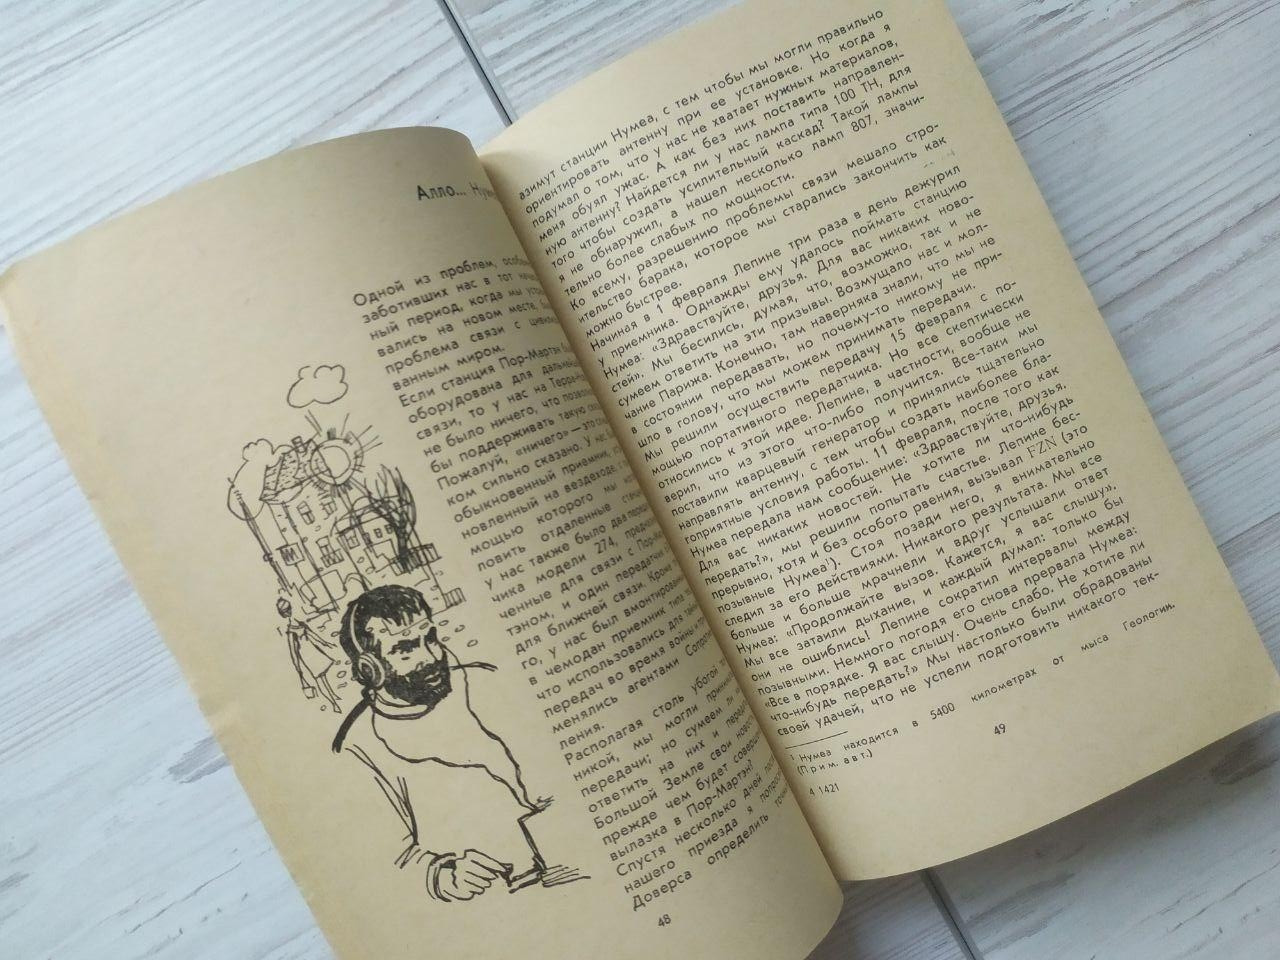 Алло... Нуме
Одной из проблем, особе
заботивших нас в тот
ный период, когда мы
вались на новом месте,
проблема связи с
ванным миром.
Если станция Пор-Мартэн
оборудована для
связи, то у нас на
не было ничего, что
бы поддерживать такую
Пожалуй, «ничего» — это
ком сильно сказано. У нас
обыкновенный приемник,
новленный на вездеходе, с
мощью которого мы
ловить отдаленные
у нас также было два
чика модели 274,
ченные для связи с
тэном, и один передатчик
для ближней связи. Кроме
го, у нас был вмонтирован
в чемодан приемник типа
что использовались для
передач во время войны и
менялись агентами
ления.
Располагая столь убогой
никой, мы могли
передачи; но сумеем ли
ответить на них и
Большой Земле свои
прежде чем будет
вылазка в Пор-Мартэн?
Спустя несколько дней
нашего приезда я
Доверса определить
48
азимут станции Нумеа, с тем чтобы мы могли правильно
ориентировать антенну при ее установке. Но когда я
подумал о том, что у нас не хватает нужных материалов,
меня обуял ужас. А как без них поставить направлен-
ную антенну? Найдется ли у нас лампа типа 100 ТН, для
того чтобы создать усилительный каскад? Такой лампы
я не обнаружил, а нашел несколько ламп 807, значи-
тельно более слабых по мощности.
Ко всему, разрешению проблемы связи мешало стро-
ительство барака, которое мы старались закончить как
можно быстрее.
Начиная в 1 февраля Лепине три раза в день дежурил
у приемника. Однажды ему удалось поймать станцию
Нумеа: «Здравствуйте, друзья. Для вас никаких ново-
стей». Мы бесились, думая, что, возможно, так и не
сумеем ответить на эти призывы. Возмущало нас и мол-
чание Парижа. Конечно, там наверняка знали, что мы не
в состоянии передавать, но почему-то никому не при-
шло в голову, что мы можем принимать передачи.
Мы решили осуществить передачу 15 февраля с по-
мощью портативного передатчика. Но все скептически
относились к этой идее. Лепине, в частности, вообще не
верил, что из этого что-либо получится. Все-таки мы
поставили кварцевый генератор и принялись тщательно
направлять антенну, с тем чтобы создать наиболее бла-
гоприятные условия работы. 11 февраля, после того как
Нумеа передала нам сообщение: «Здравствуйте, друзья.
Для вас никаких новостей. Не хотите ли что-нибудь
передать?», мы решили попытать счастье. Лепине бес-
прерывно, хотя и без особого рвения, вызывал FZN (это
позывные Нумеа¹). Стоя позади него, я внимательно
следил за его действиями. Никакого результата. Мы все
больше и больше мрачнели и вдруг услышали ответ
Нумеа: «Продолжайте вызов. Кажется, я вас слышу».
Мы все затаили дыхание, и каждый думал: только бы
они не ошиблись! Лепине сократил интервалы между
позывными. Немного погодя его снова прервала Нумеа:
«Все в порядке. Я вас слышу. Очень слабо. Не хотите ли
что-нибудь передать?» Мы настолько были обрадованы
своей удачей, что не успели подготовить никакого тек-
¹ Нумеа находится в 5400 километрах от мыса Геологии.
(Прим. авт.)
49
4 1421